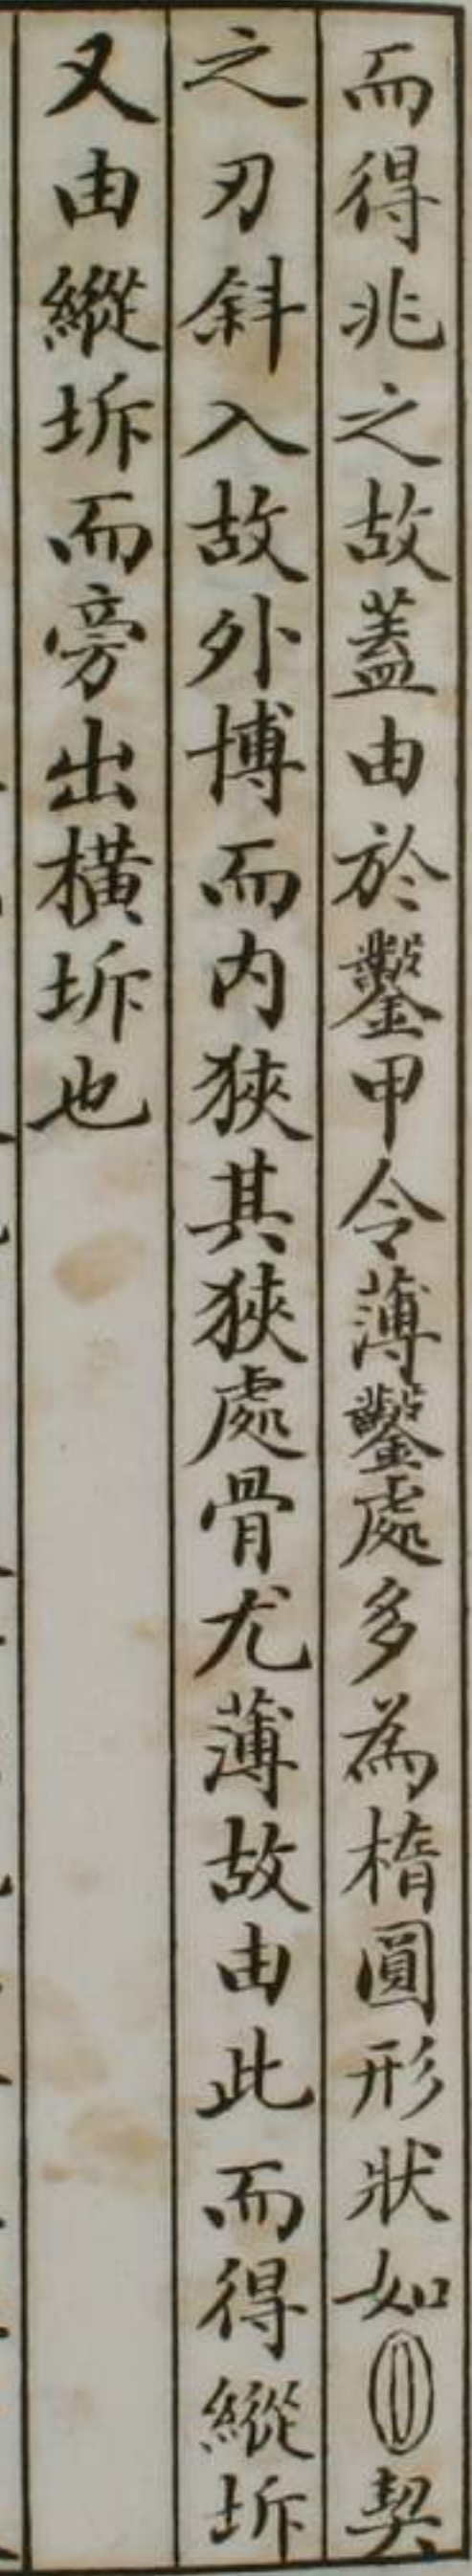 而得兆之故蓋由於鑿甲令薄鑿處多為楕圓形狀如契
之刃斜入故外博而内狹其狹處骨尤薄故由此而得縱坼
又由縱坼而旁出橫坼也